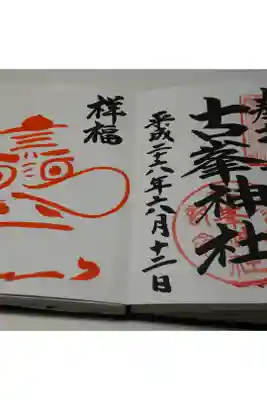 古峯神社
平成二十八年六月十二日
祥福